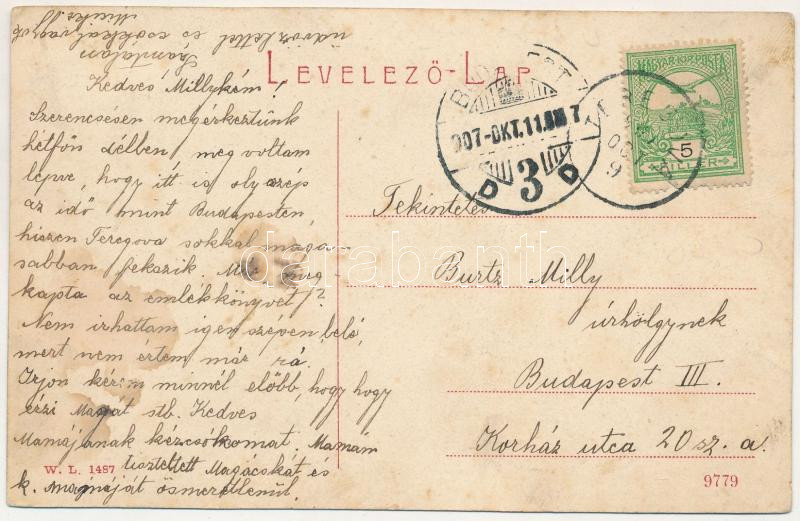 LEVELEZŐ-LAP
Kedves Millykém!
Szerencsésen megérkeztünk
hétfőn délben, meg voltam
lepve, hogy itt is oly szép
az idő mint Budapesten,
hiszen Teregova sokkal maga-
sabban fekszik. Már meg-
kapta az emlékkönyvet?
Nem irhattam igen szépen belé,
mert nem értem már rá.
Irjon kérem minnél előbb, hogy hogy
érzi Magát stb. Kedves
Mamájának kézcsókomat. Mamám
tisztelteti Magácskát és
k. mamáját ösmeretlenül.
üdvözlettel és csokkal vagyok
Tekintetes
Burtz Milly
úrhölgynek
Budapest III.
Korház utca 20 sz. a.
W. L. 1487
9779
MAGYAR KIR. POSTA
5
FILLÉR
BUDAPEST
907-OKT.11
3
D D
darabanth